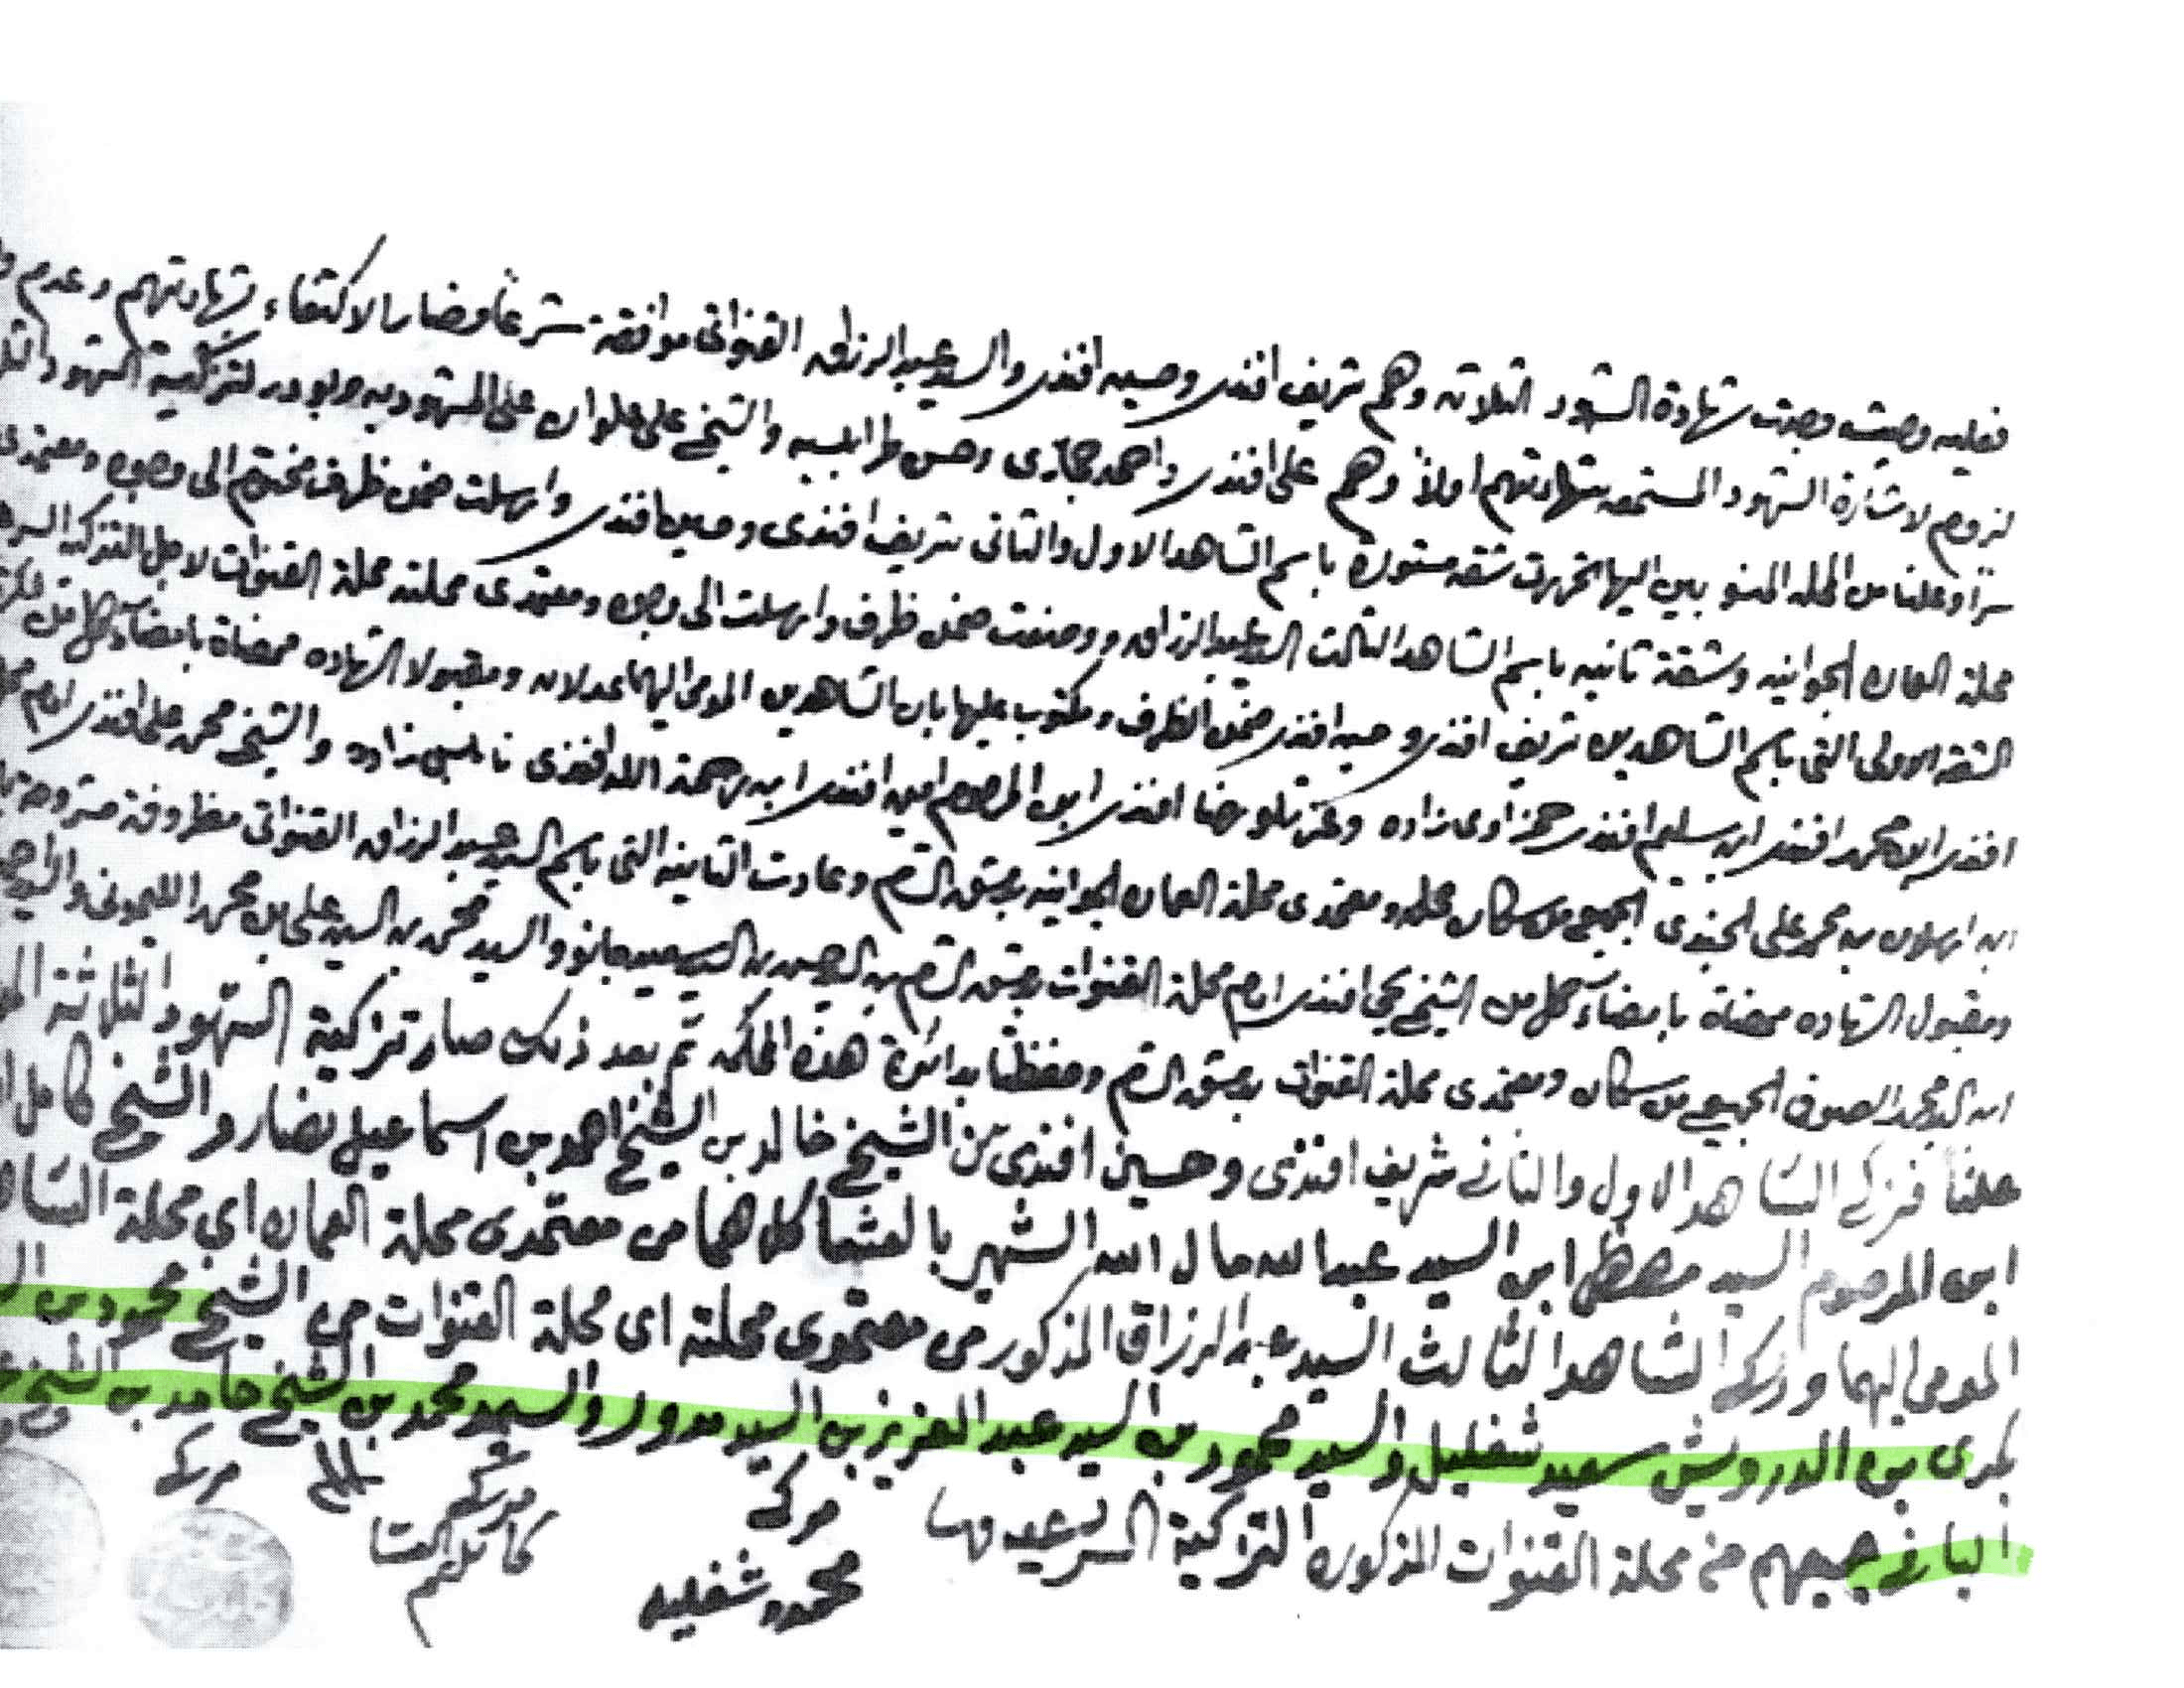 فعليه وجدت شهادة الشهود الثلاثة وهم شريف افندي وحسين افندي والسيد عبد الرزاق القنواتي موافقة شرعا فصار الاكتفاء بشهادتهم وعدم
لزوم لاشارة الشهود المستمعه شهادتهم اولاً وهم علي افندي واحمد حجازي وحسن طرابلسيه والشيخ علي علوان على المشهود به وبودر لتزكية الشهود
سراً وعلنا من المحله المنسوبين اليها فحررت شقه مستورة باسم الشاهد الاول والثاني شريف افندي وحسين افندي وارسلت ضمن ظرف مختوم الى ومعتمدي
محلة العماره الجوانيه وشقة ثانيه باسم الشاهد الثالث السيد عبد الرزاق ووضعت ضمن ظرف وارسلت الى ومعتمدي محلته محلة القنوات لاجل التزكيه
الشقه الاولى التي باسم الشاهدين شريف افندي وحسين افندي ضمن الظرف ومكتوب عليها بان الشاهدين المومى اليهما عدلان ومقبولا الشهاده ممضاة بامضاء كل من
افندي ابن محمد افندي ابن سليم افندي حمزاوي زاده وعزتلو رضا افندي ابن المرحوم امين افندي ابن رحمة الله افندي نابلسي زاده والشيخ محمد علي افندي امام
ابن ارسلان بن محمد علي الجندي الجميع من سكان محله ومعتمدي محلة العماره الجوانيه بدمشق الشام وعادت الثانيه التي باسم السيد عبد الرزاق القنواتي مظروفة
ومقبول الشهاده ممضاة بامضاء كل من الشيخ يحيى افندي امام محلة القنوات بدمشق الشام بن السيد حسن بن السيد والسيد محمد بن السيد علي بن محمد
ابن السيد محمد الصوف الجميع من سكان ومعتمدي محلة القنوات بدمشق الشام وحفظتا بدائرة هذه المحكمه ثم بعد ذلك صار تزكية الشهود الثلاثة
علناً فزكي الشاهد الاول والثاني شريف افندي وحسين افندي من الشيخ خالد بن الشيخ احمد بن اسماعيل نصار والشيخ كامل
ابن المرحوم السيد مصطفى ابن السيد عبد الله مال الله الشهير بالعشا كلاهما من معتمدي محلة العماره اي محلة
المومى اليهما وزكي الشاهد الثالث السيد عبد الرزاق المذكور من معتمدي محلته اي محلة القنوات من الشيخ محمود بن
بكري بن الدرويش سعيد شغليل والسيد محمود بن السيد عبد العزيز بن السيد مدور والسيد محمد بن الشيخ حامد بن الشيخ
الباز في جميعهم من محلة القنوات المذكوره التزكية الشرعيه
مزكي
محمود شغليل
مزكي
كامل العشا
مزكي